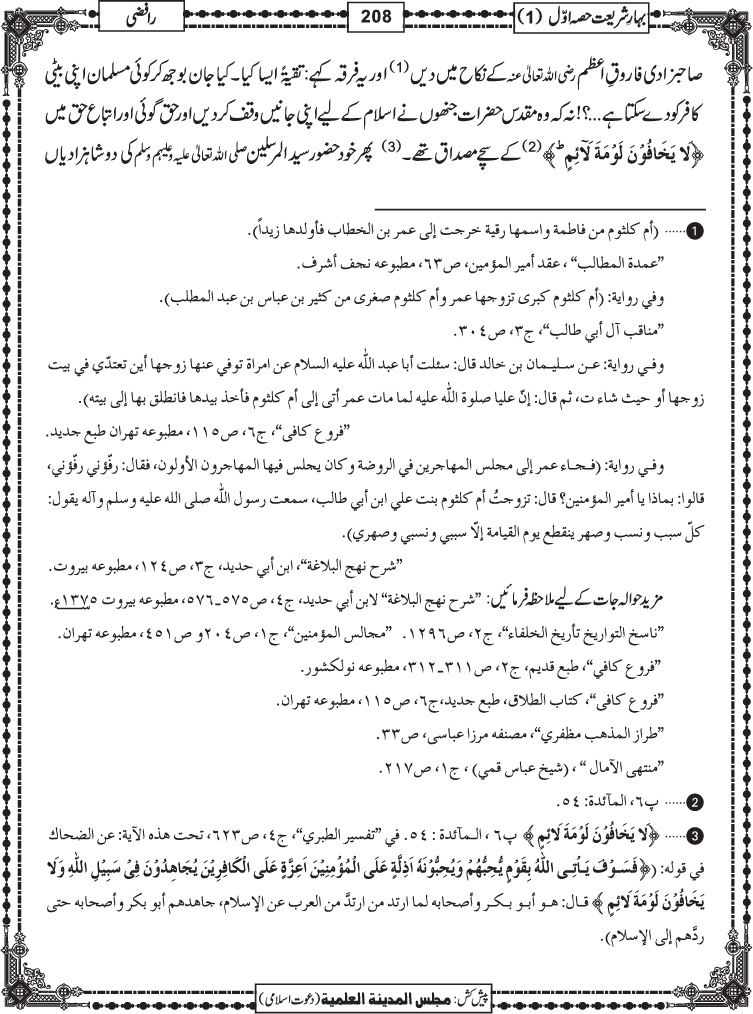 بہارِ شریعت حصہ اوّل (1)
208
رافضی
صاحبزادی فاروقِ اعظم رضی اللہ تعالیٰ عنہ کے نکاح میں دیں(1) اور یہ فرقہ کہے: تقیۃً ایسا کیا۔ کیا جان بوجھ کر کوئی مسلمان اپنی بیٹی
کافر کو دے سکتا ہے...؟! نہ کہ وہ مقدس حضرات جنھوں نے اسلام کے لیے اپنی جانیں وقف کر دیں اور حق گوئی اور اتباعِ حق میں
﴿لَا یَخَافُوْنَ لَوْمَةَ لَآئِمٍ ؕ﴾(2) کے سچے مصداق تھے۔(3) پھر خود حضور سید المرسلین صلی اللہ تعالیٰ علیہ وعلیہم وسلم کی دو شاہزادیاں
1 ...... (أم كلثوم من فاطمة واسمها رقية خرجت إلى عمر بن الخطاب فأولدها زيداً).
”عمدة المطالب“، عقد أمير المؤمين، ص٦٣، مطبوعه نجف أشرف.
وفي رواية: (أم كلثوم كبرى تزوجها عمر وأم كلثوم صغرى من كثير بن عباس بن عبد المطلب).
”مناقب آل أبي طالب“، ج٣، ص٣٠٤.
وفي رواية: عن سليمان بن خالد قال: سئلت أبا عبد الله عليه السلام عن امراة توفي عنها زوجها أين تعتدّي في بيت
زوجها أو حيث شاء ت، ثم قال: إنّ عليا صلوة الله عليه لما مات عمر أتى إلى أم كلثوم فأخذ بيدها فانطلق بها إلى بيته).
”فروع كافى“، ج٦، ص١١٥، مطبوعه تهران طبع جديد.
وفي رواية: (فجاء عمر إلى مجلس المهاجرين في الروضة وكان يجلس فيها المهاجرون الأولون، فقال: رفّؤني رفّؤني،
قالوا: بماذا يا أمير المؤمنين؟ قال: تزوجتُ أم كلثوم بنت علي ابن أبي طالب، سمعت رسول الله صلى الله عليه وسلم وآله يقول:
كلّ سبب ونسب وصهر ينقطع يوم القيامة إلّا سببي ونسبي وصهري).
”شرح نهج البلاغة“، ابن أبي حديد، ج٣، ص١٢٤، مطبوعه بيروت.
مزید حوالہ جات کے لیے ملاحظہ فرمائیں: ”شرح نهج البلاغة“ لابن أبي حديد، ج٤، ص٥٧٥ـ٥٧٦، مطبوعه بيروت ١٣٧٥ء.
”ناسخ التواريخ تأريخ الخلفاء“، ج٢، ص١٢٩٦. ”مجالس المؤمنين“، ج١، ص٢٠٤ و ص٤٥١، مطبوعه تهران.
”فروع كافي“، طبع قديم، ج٢، ص٣١١ـ٣١٢، مطبوعه نولكشور.
”فروع كافى“، كتاب الطلاق، طبع جديد،ج٦، ص١١٥، مطبوعه تهران.
”طراز المذهب مظفري“، مصنفه مرزا عباسى، ص٣٣.
”منتهى الآمال“، (شيخ عباس قمي)، ج١، ص٢١٧.
2 ...... پ٦، المآئدة: ٥٤.
3 ...... ﴿لَا يَخَافُوْنَ لَوْمَةَ لَائِمٍ﴾ پ٦، المآئدة: ٥٤. في ”تفسير الطبري“، ج٤، ص٦٢٣، تحت هذه الآية: عن الضحاك
في قوله: (﴿فَسَوْفَ يَأْتِى اللّٰهُ بِقَوْمٍ يُّحِبُّهُمْ وَيُحِبُّوْنَهُ اَذِلَّةٍ عَلَى الْمُؤْمِنِيْنَ اَعِزَّةٍ عَلَى الْكَافِرِيْنَ يُجَاهِدُوْنَ فِىْ سَبِيْلِ اللّٰهِ وَلَا
يَخَافُوْنَ لَوْمَةَ لَائِمٍ﴾ قال: هو أبو بكر وأصحابه لما ارتد من ارتدَّ من العرب عن الإسلام، جاهدهم أبو بكر وأصحابه حتى
ردَّهم إلى الإسلام).
پیش کش: مجلس المدینۃ العلمیۃ (دعوت اسلامی)